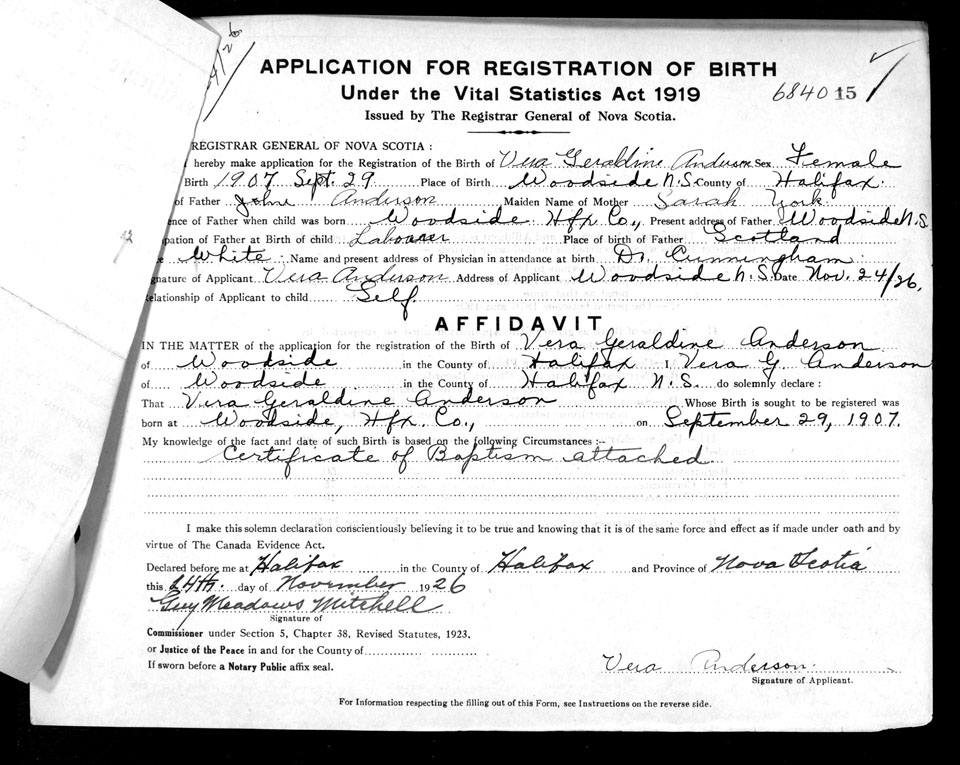 APPLICATION FOR REGISTRATION OF BIRTH
Under the Vital Statistics Act 1919
6840 15
Issued by The Registrar General of Nova Scotia.
REGISTRAR GENERAL OF NOVA SCOTIA :
hereby make application for the Registration of the Birth of Vera Geraldine Anderson Sex Female
Birth 1907 Sept. 29 Place of Birth Woodside N.S. County of Halifax.
of Father John Anderson Maiden Name of Mother Sarah York
ence of Father when child was born Woodside Hfx Co., Present address of Father Woodside N.S.
pation of Father at Birth of child Labourer Place of birth of Father Scotland
White Name and present address of Physician in attendance at birth Dr. Cunningham.
gnature of Applicant Vera Anderson Address of Applicant Woodside N.S. Date Nov. 24/26.
elationship of Applicant to child Self.
AFFIDAVIT
IN THE MATTER of the application for the registration of the Birth of Vera Geraldine Anderson
of Woodside in the County of Halifax I, Vera G. Anderson
of Woodside in the County of Halifax N.S. do solemnly declare :
That Vera Geraldine Anderson Whose Birth is sought to be registered was
born at Woodside, Hfx. Co., on September 29, 1907.
My knowledge of the fact and date of such Birth is based on the following Circumstances :--
Certificate of Baptism attached
I make this solemn declaration conscientiously believing it to be true and knowing that it is of the same force and effect as if made under oath and by
virtue of The Canada Evidence Act.
Declared before me at Halifax in the County of Halifax and Province of Nova Scotia
this 24th. day of November 1926
Guy Meadows Mitchell
Signature of
Commissioner under Section 5, Chapter 38, Revised Statutes, 1923.
or Justice of the Peace in and for the County of
If sworn before a Notary Public affix seal.
Vera Anderson.
Signature of Applicant.
For Information respecting the filling out of this Form, see Instructions on the reverse side.